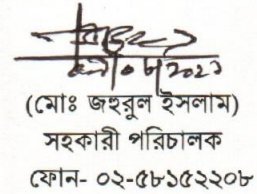 (মোঃ জহুরুল ইসলাম)
সহকারী পরিচালক
ফোন- ০২-৫৮১৫২২০৮